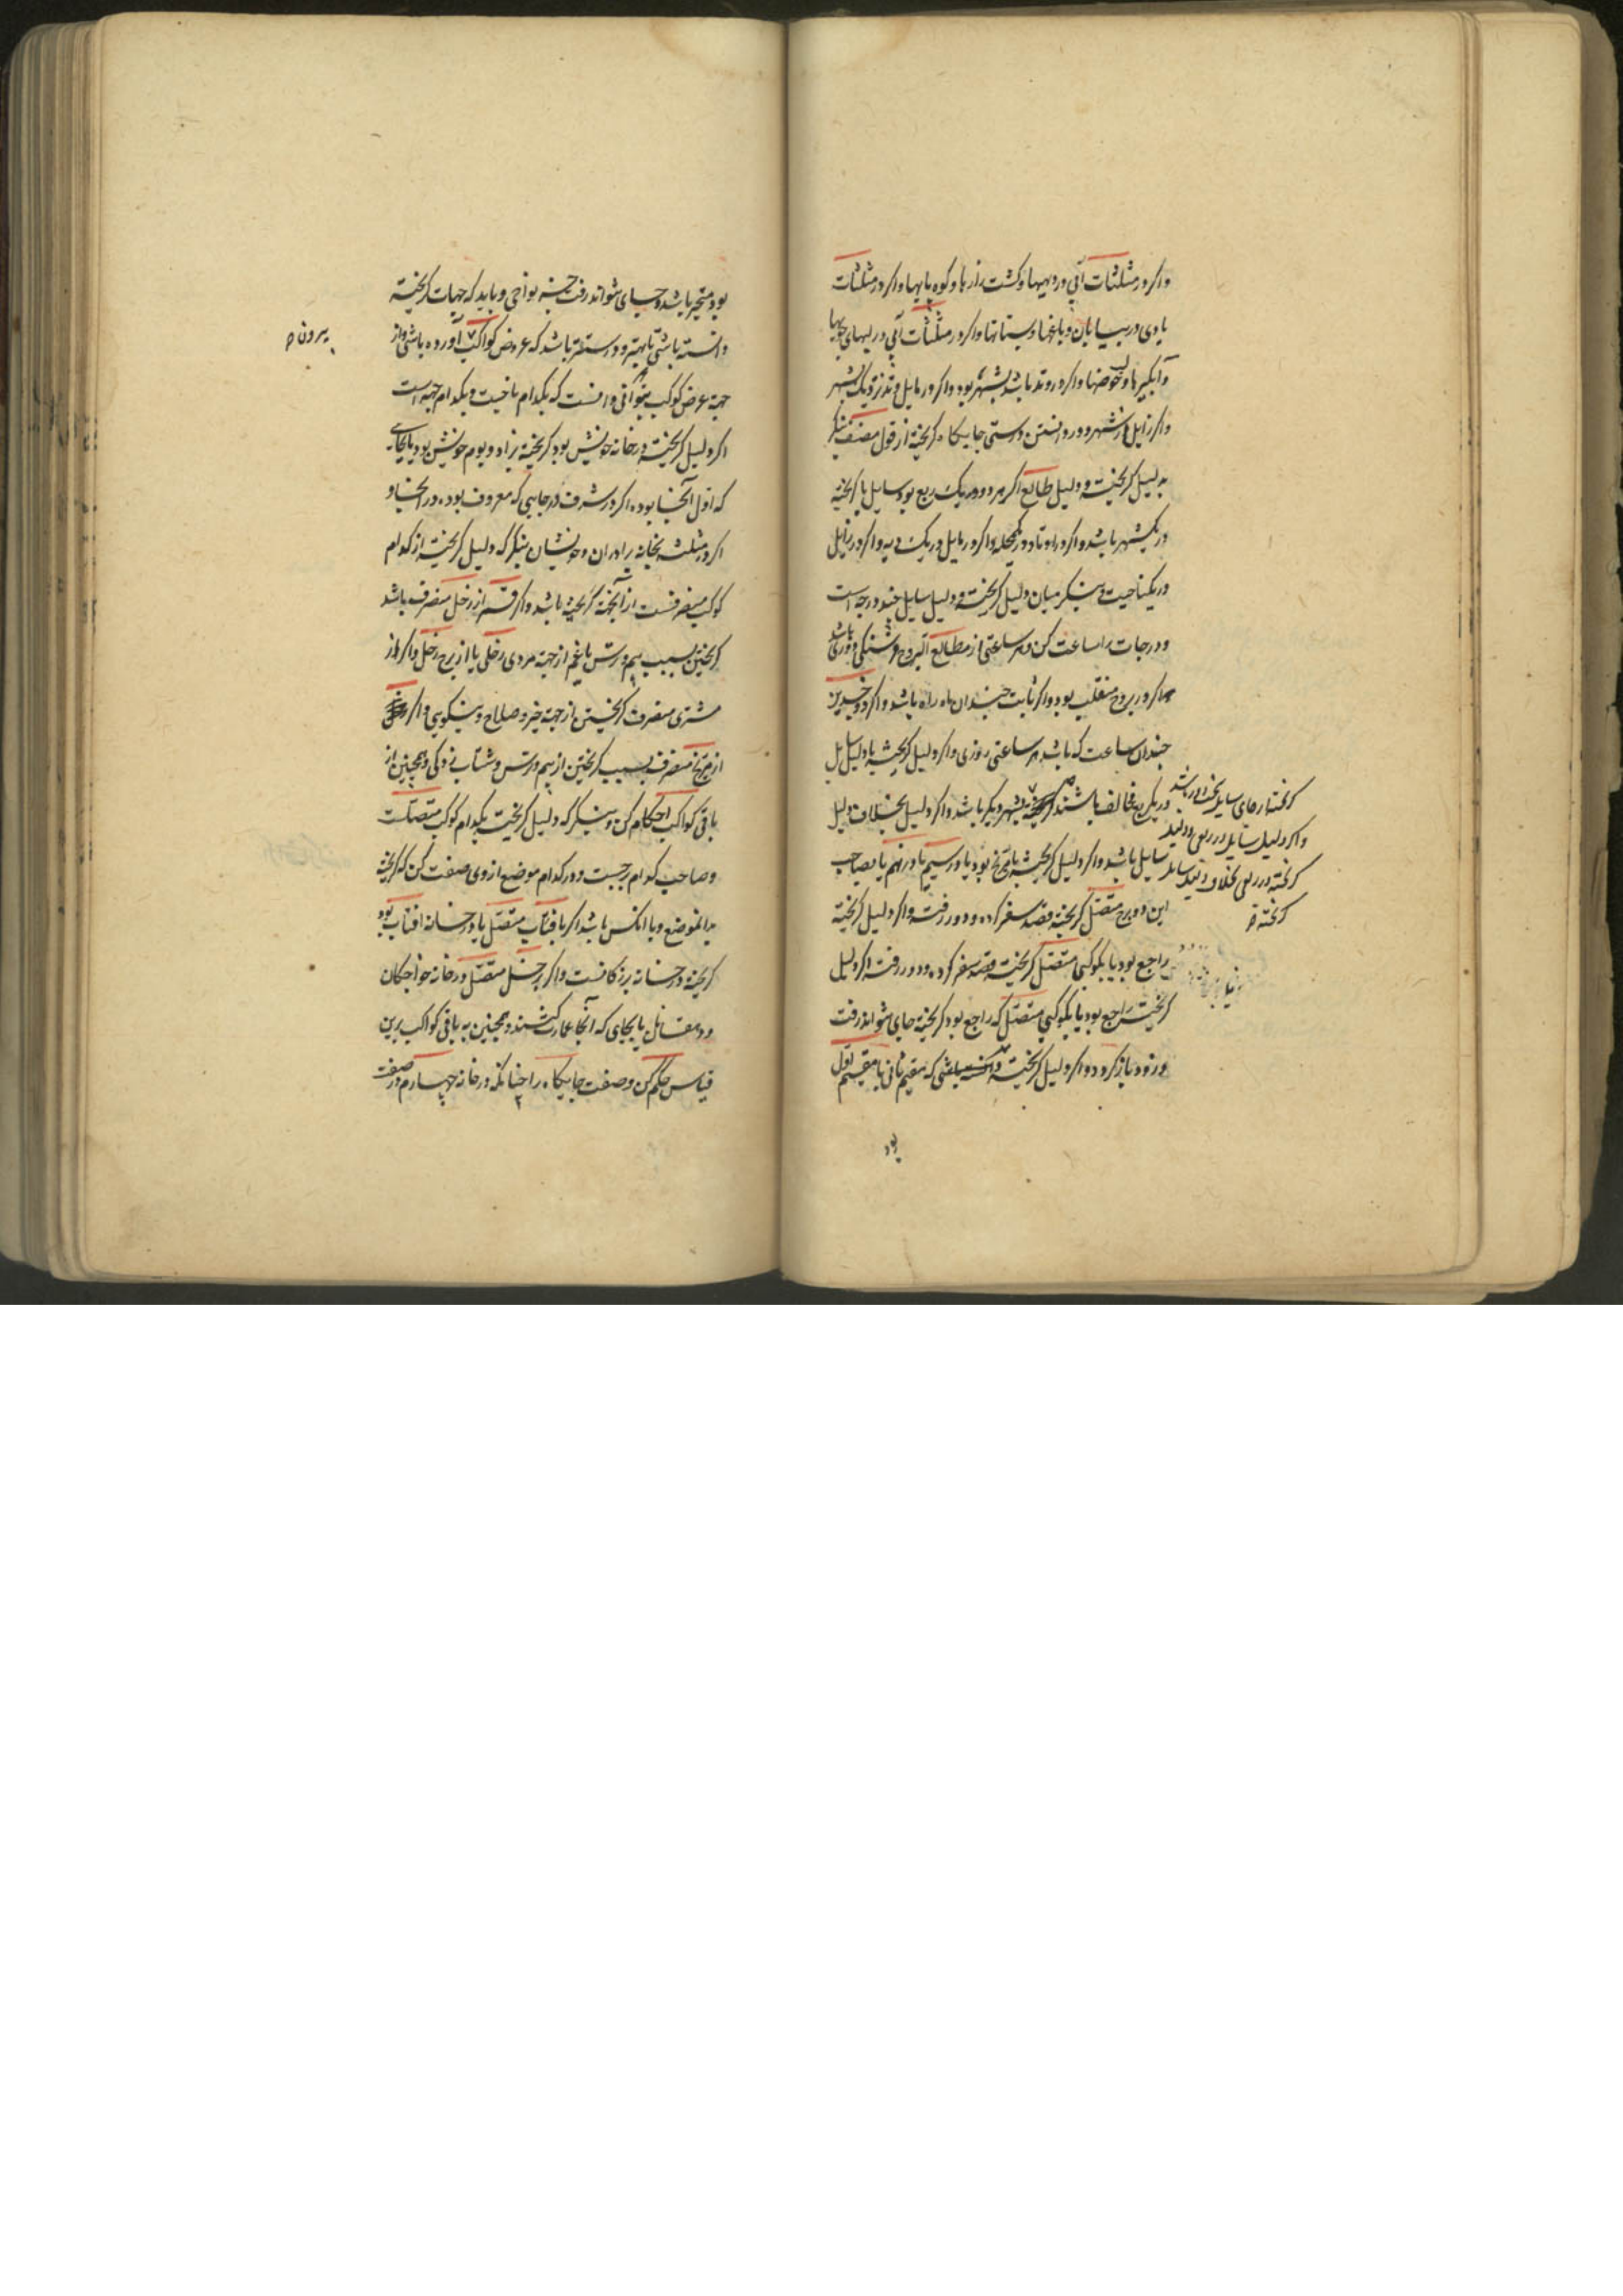 واکر در مثلثات آبی در دیهها و کشت زارها و کوه پایها واکر در مثلثات
بادی در بیابان و باغها و بستانها واکر در مثلثات آبی در لبهای جویها
وآبکیرها و حوضها واکر در وتد باشد بشهر بود واکر در مایل وتد نزدیک شهر
واکر زایل از شهر دور و دانستن درستی جایکاه کریخته از قول مصنف بنکر
بدلیل کریخته و دلیل طالع اکر هر دو در یک ربع بود سایل با کریخته
در یکشهر باشد واکر در اوتاد در یکمحله واکر در مایل در یک دیه واکر در زایل
در یکناحیت و بنکر میان دلیل کریخته و دلیل سایل چند درجه است
و درجات را ساعت کن و هر ساعتی از مطالع البروج فرسنکی و دوری باشد
اکر در بروج منقلب بود واکر ثابت چندان ماه راه باشد واکر ذو جسدین
چندان ساعت که باشد هر ساعتی روزی واکر دلیل کریخته با دلیل سایل
در یکربع مخالف باشند کریخته بشهر دیکر باشد واکر دلیل بخلاف دلیل
سایل باشد واکر دلیل کریخته با مریخ بود یا در سیم یا در نهم یا بصاحب
این دو برج متصل کریخته قصد سفر کرده و دور رفت واکر دلیل کریخته
راجع بود یا بکوکبی متصل کریخته قصد سفر کرده و دور رفت اکر دلیل
کریخته راجع بود یا بکوکبی متصل که راجع بود کریخته جای نتواند رفت
و زود باز کردد واکر دلیل کریخته دانسته باشی که مقیم ثانی یا مقیم اول
کریخته از جای سایل
واکر دلیل سایل در ربعی بود و دلیل
کریخته در ربعی بخلاف دلیل سایل
کریخته
بود
بود متحیر باشد و جای نتواند رفت جز بنواحی و باید که جهات کریخته
دانسته باشی تا بهتر و درستتر باشد که عروض کواکب آورده باشی واز
جهة عرض کوکب بتوانی دانست که بکدام ناحیت و بکدام جهة است
اکر دلیل کریخته در خانه خویش بود کریخته بزاد و بوم خویش بود یا بجای
که اول آنجا بوده اکر در شرف در جایی که معروف بوده در آنجا و
اکر در مثلثه بخانه برادران و خویشان بنکر که دلیل کریخته از کدام
کوکب منصرفست از آنجهة کریخته باشد واکر قمر از زحل منصرف باشد
کریختن بسبب بیم و ترس یا غم از جهة مردی زحلی یا از برج زحل واکر از
مشتری منصرف کریختن از جهة خیر و صلاح و نیکویی واکر
از مریخ منصرف بسبب کریختن از بیم و ترس و شتاب زدکی و همچنین از
باقی کواکب احکام کن و بنکر که دلیل کریخته بکدام کوکب متصلست
وصاحب کدام برجست و در کدام موضع از وی صفت کن که کریخته
بدانموضع و با آنکس باشد اکر بافتاب متصل یا در خانه افتاب بود
کریخته در خانه بزرکانست واکر بزحل متصل در خانه خواجکان
و دهقانان یا بجای که آنجا عمارت کنند و همچنین به باقی کواکب برین
قیاس حکم کن و صفت جایکاه را چنانکه در خانه چهارم در صفت
بیرون